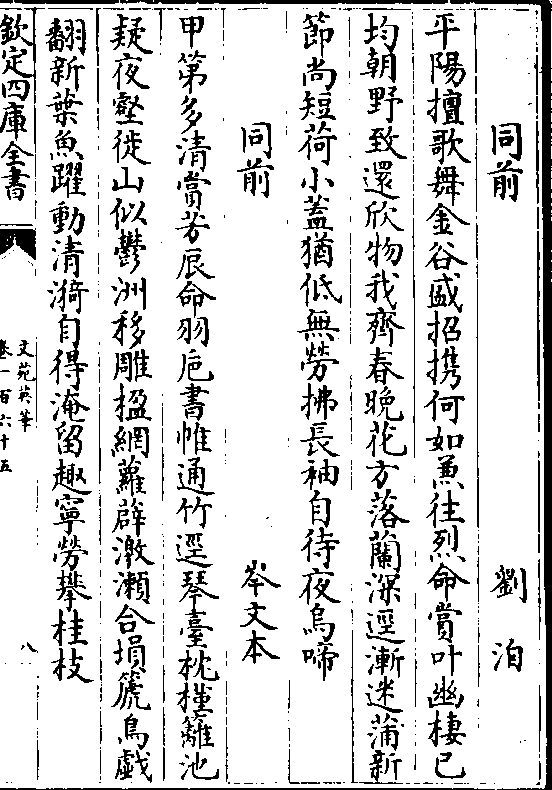 同前　劉洎
平陽擅歌舞金谷盛招携何如兼往烈命賞叶幽棲已
均朝野致還欣物我齊春晚花方落蘭深逕漸迷蒲新
節尚短荷小蓋猶低無勞拂長袖自待夜烏啼
同前　岑文本
甲第多清賞芳辰命羽巵書帷通竹逕琴臺枕槿籬池
疑夜壑徙山似鬱洲移雕楹網蘿薜激瀨合塤箎鳥戯
翻新葉魚躍動清漪自得淹留趣寧勞攀桂枝
欽定四庫全書
文苑英華
卷一百六十五
八